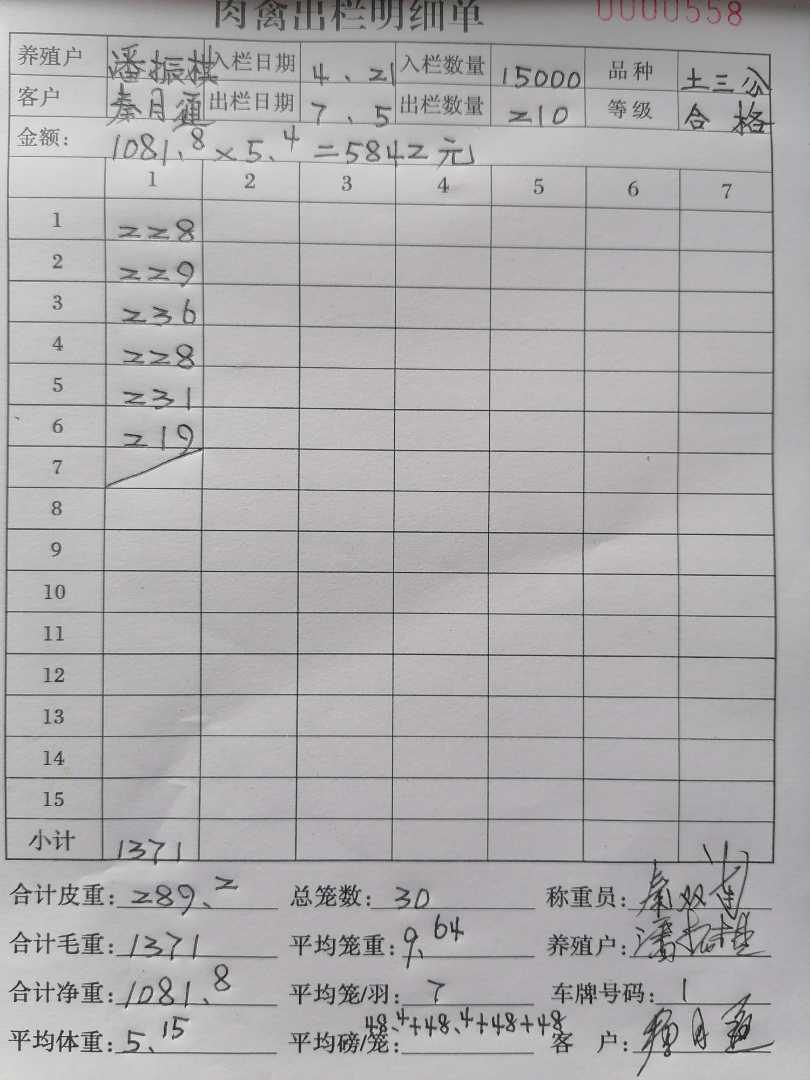 肉禽出栏明细单 0000558
养殖户 潘振棋 入栏日期 4、21 入栏数量 15000 品种 土三公
客户 秦月通 出栏日期 7、5 出栏数量 210 等级 合格
金额: 1081.8×5.4=5842元
1 2 3 4 5 6 7
1 228
2 229
3 236
4 228
5 231
6 219
7
8
9
10
11
12
13
14
15
小计 1371
合计皮重: 289.2 总笼数: 30 称重员:
合计毛重: 1371 平均笼重: 9.64 养殖户:
合计净重: 1081.8 平均笼/羽: 7 车牌号码: 1
平均体重: 5.15 平均磅/笼: 48.4+48.4+48+48 客户: